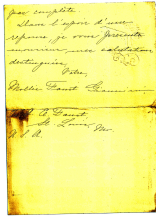 pas complète.
Dans l'espoir d'une
réponse, je vous présente
monsieur, mes salutations
distinguées.
Votre,
Mollie Faust
A. E. Faust,
St. Louis, Mo.
U S A